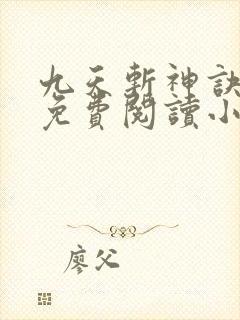 九天斬神訣
免費閱讀小
廖父